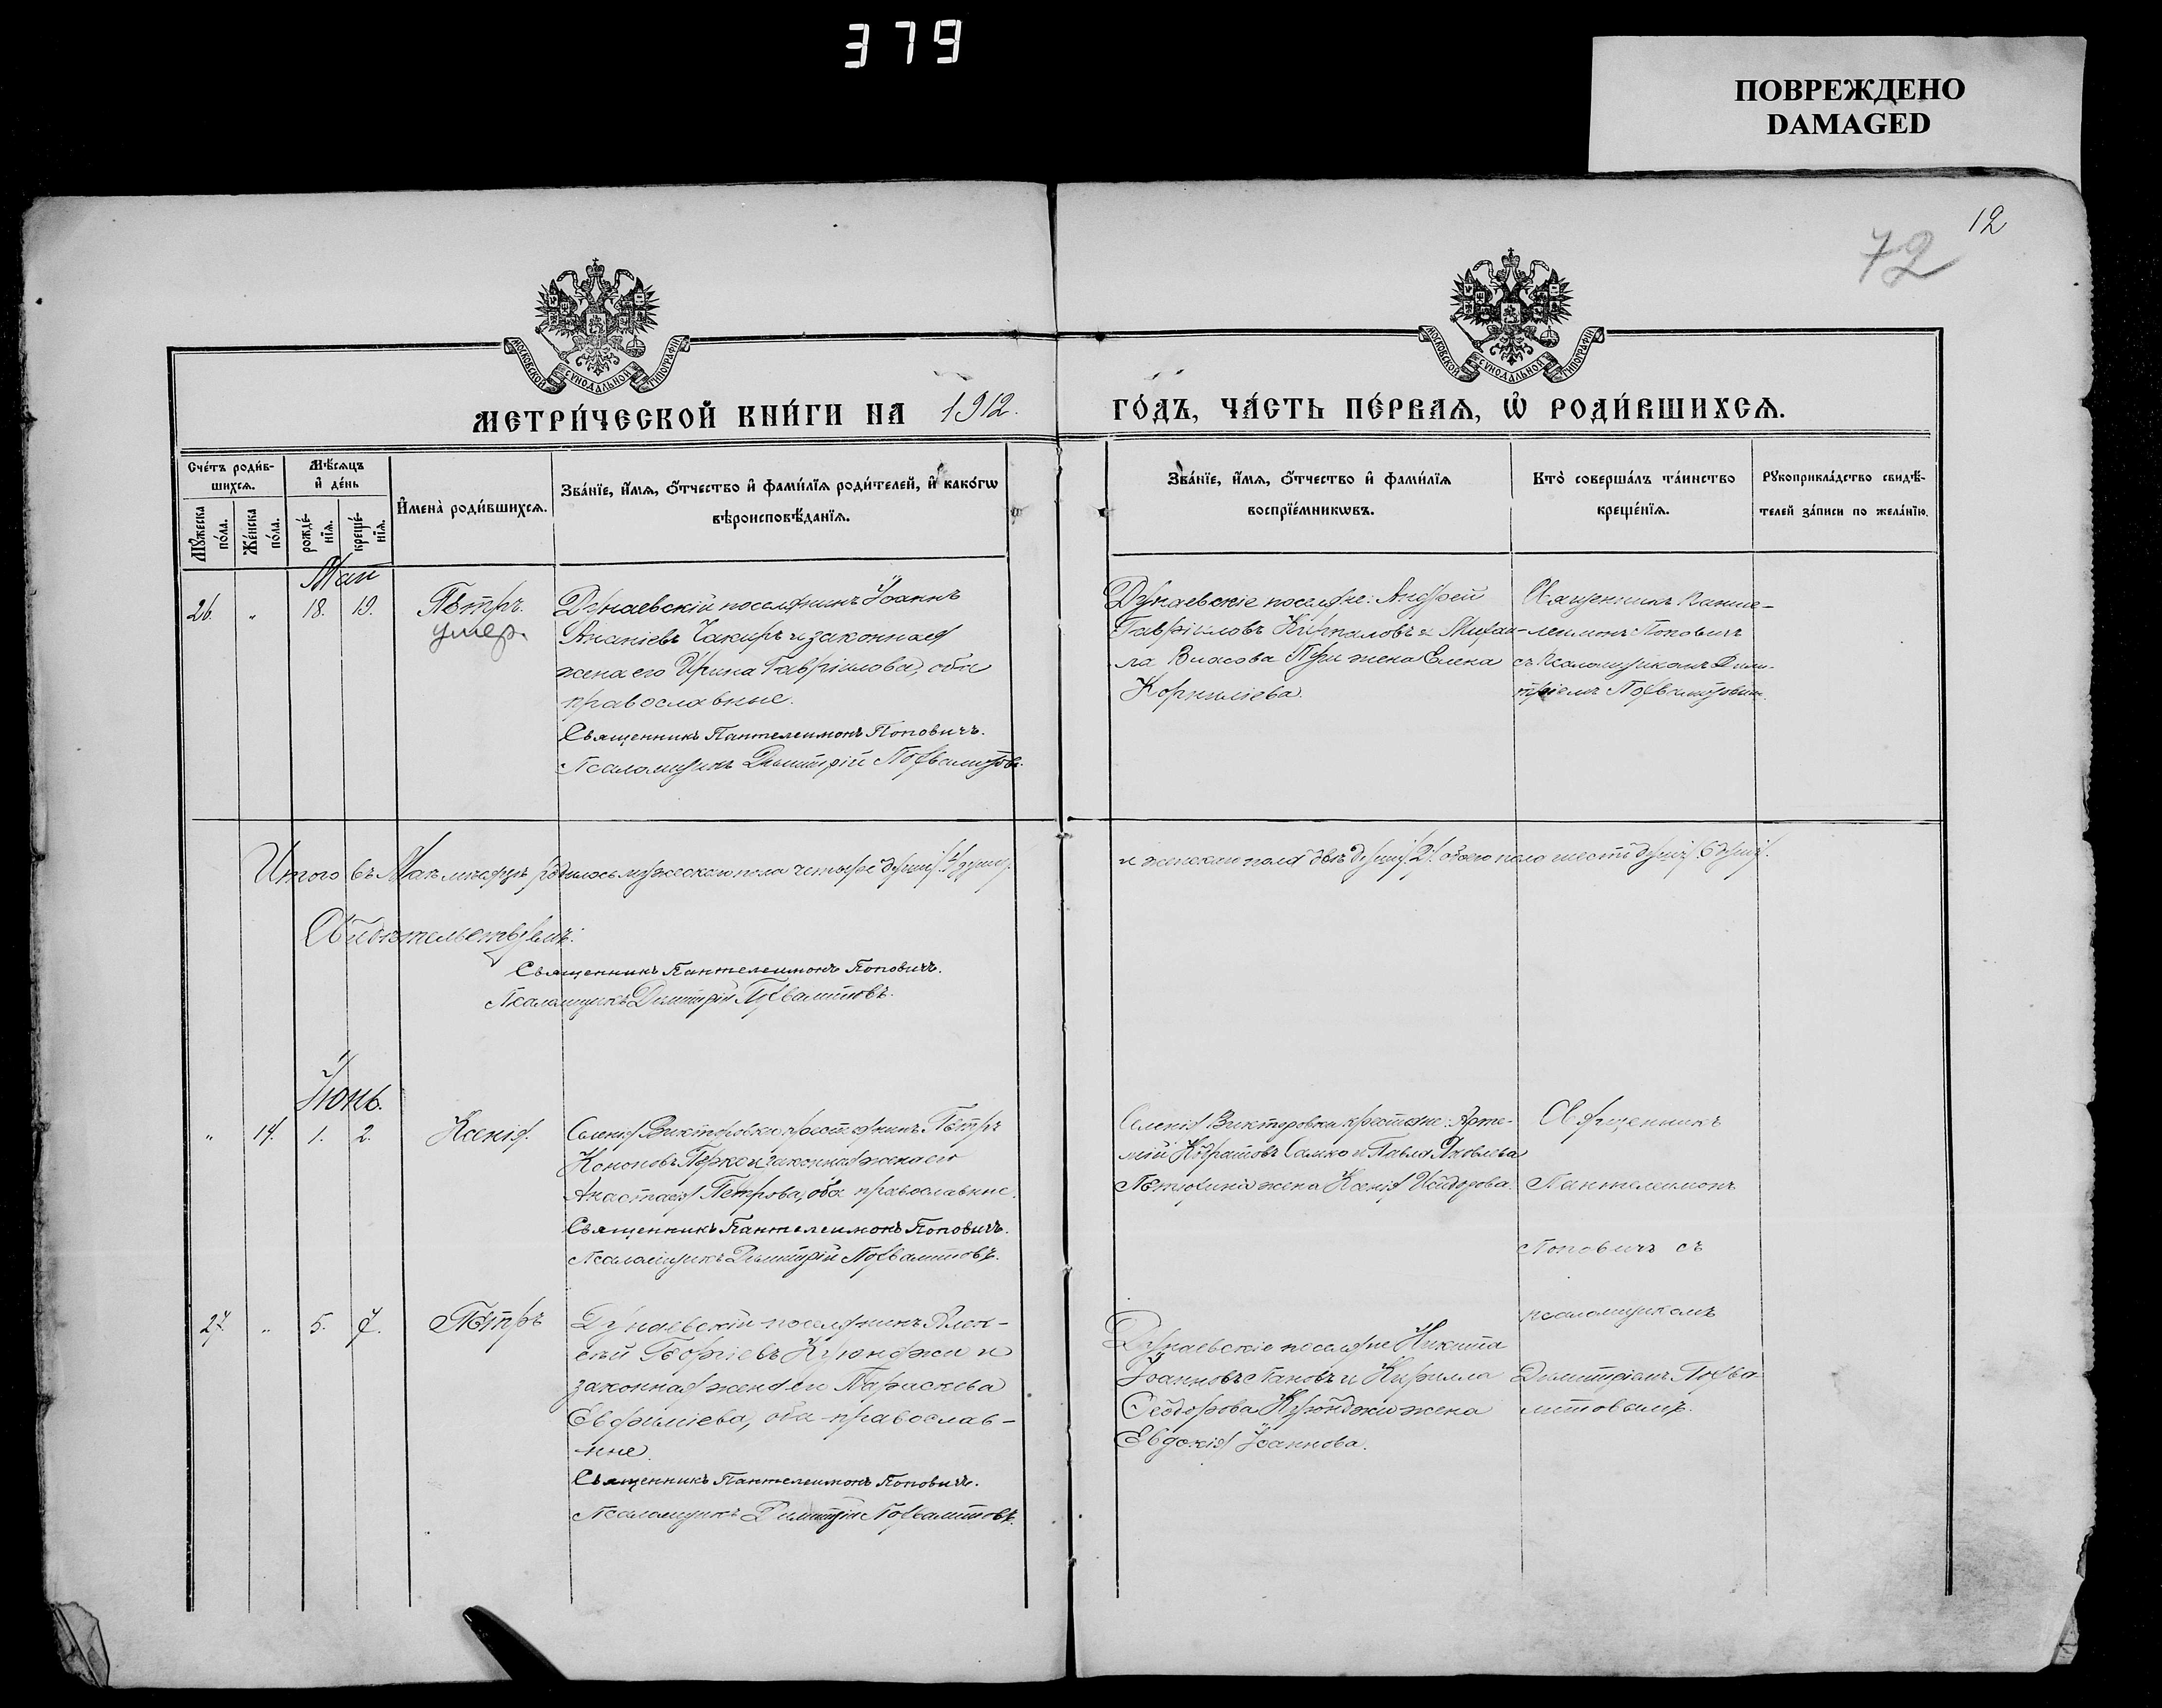 379
ПОВРЕЖДЕНО
DAMAGED
12
72
МОСКОВСКОЙ СѴНОДАЛЬНОЙ ТИПОГРАФІИ
МОСКОВСКОЙ СѴНОДАЛЬНОЙ ТИПОГРАФІИ
МЕТРИ́ЧЕСКОЙ КНИ́ГИ НА 1912. ГО́ДЪ, ЧА́СТЬ ПЕ́РВАѦ, Ѡ҆ РОДИ́ВШИХСѦ.
Сче́тъ роди́в-
шихсѧ.
Мѣ́сѧцъ
и҆ де́нь
Мꙋ́жеска по́ла.
Же́нска по́ла.
рожде́-нїѧ.
креще́-нїѧ.
И҆мена̀ роди́вшихсѧ.
Зва́нїе, и҆́мѧ, ѻ҆́тчество и҆ фами́лїѧ роди́телей, и҆ како́гѡ
вѣроисповѣ́данїѧ.
Зва́нїе, и҆́мѧ, ѻ҆́тчество и҆ фами́лїѧ
воспрїе́мникѡвъ.
Кто̀ соверша́лъ та́инство
креще́нїѧ.
Рꙋкоприкла́дство свидѣ́-
телей за́писи по жела́нїю.
Май
26. " 18. 19. Петръ.
умер.
Дунаевскій поселянинъ Іоаннъ
Ананіевъ Чакиръ и законная
жена его Ирина Гавріилова, оба
православные.
Священникъ Пантелеимонъ Поповичъ.
Псаломщикъ Димитрій
Дунаевскіе поселяне: Андрей
Гавріиловъ и Михаи-
ла Власова жена Елена
Корниліева.
Священникъ Панте-
леимонъ Поповичъ
съ псаломщикомъ Дими-
тріемъ
Итого въ Маѣ мѣсяцѣ родилось мужескаго пола четыре души /4 души/
и женскаго пола двѣ души /2/ обоего пола шесть душъ /6 душъ/.
Свидѣтельствуемъ:
Священникъ Пантелеимонъ Поповичъ.
Псаломщикъ Димитрій
Іюнь.
" 14. 1. 2. Ксенія.
Селенія Викторовки крестьянинъ Петръ
Кононовъ и законная жена его
Анастасія Петрова, оба православные.
Священникъ Пантелеимонъ Поповичъ.
Псаломщикъ Димитрій
Селенія Викторовки крестьяне: Арте-
мій Самко и Павла Яковлева
жена Ксенія Исидорова.
Священникъ
Пантелеимонъ
Поповичъ съ
псаломщикомъ
27. " 5. 7. Петръ
Дунаевскій поселянинъ Алек-
сѣй Георгіевъ Куюнджи и
законная жена его Параскева
Евфиміева, оба православ-
ные.
Священникъ Пантелеимонъ Поповичъ.
Псаломщикъ Димитрій
Дунаевскіе поселяне Никита
Іоанновъ Гановъ и Кирилла
Ѳеодорова Куюнджи жена
Евдокія Іоаннова.
Димитріемъ